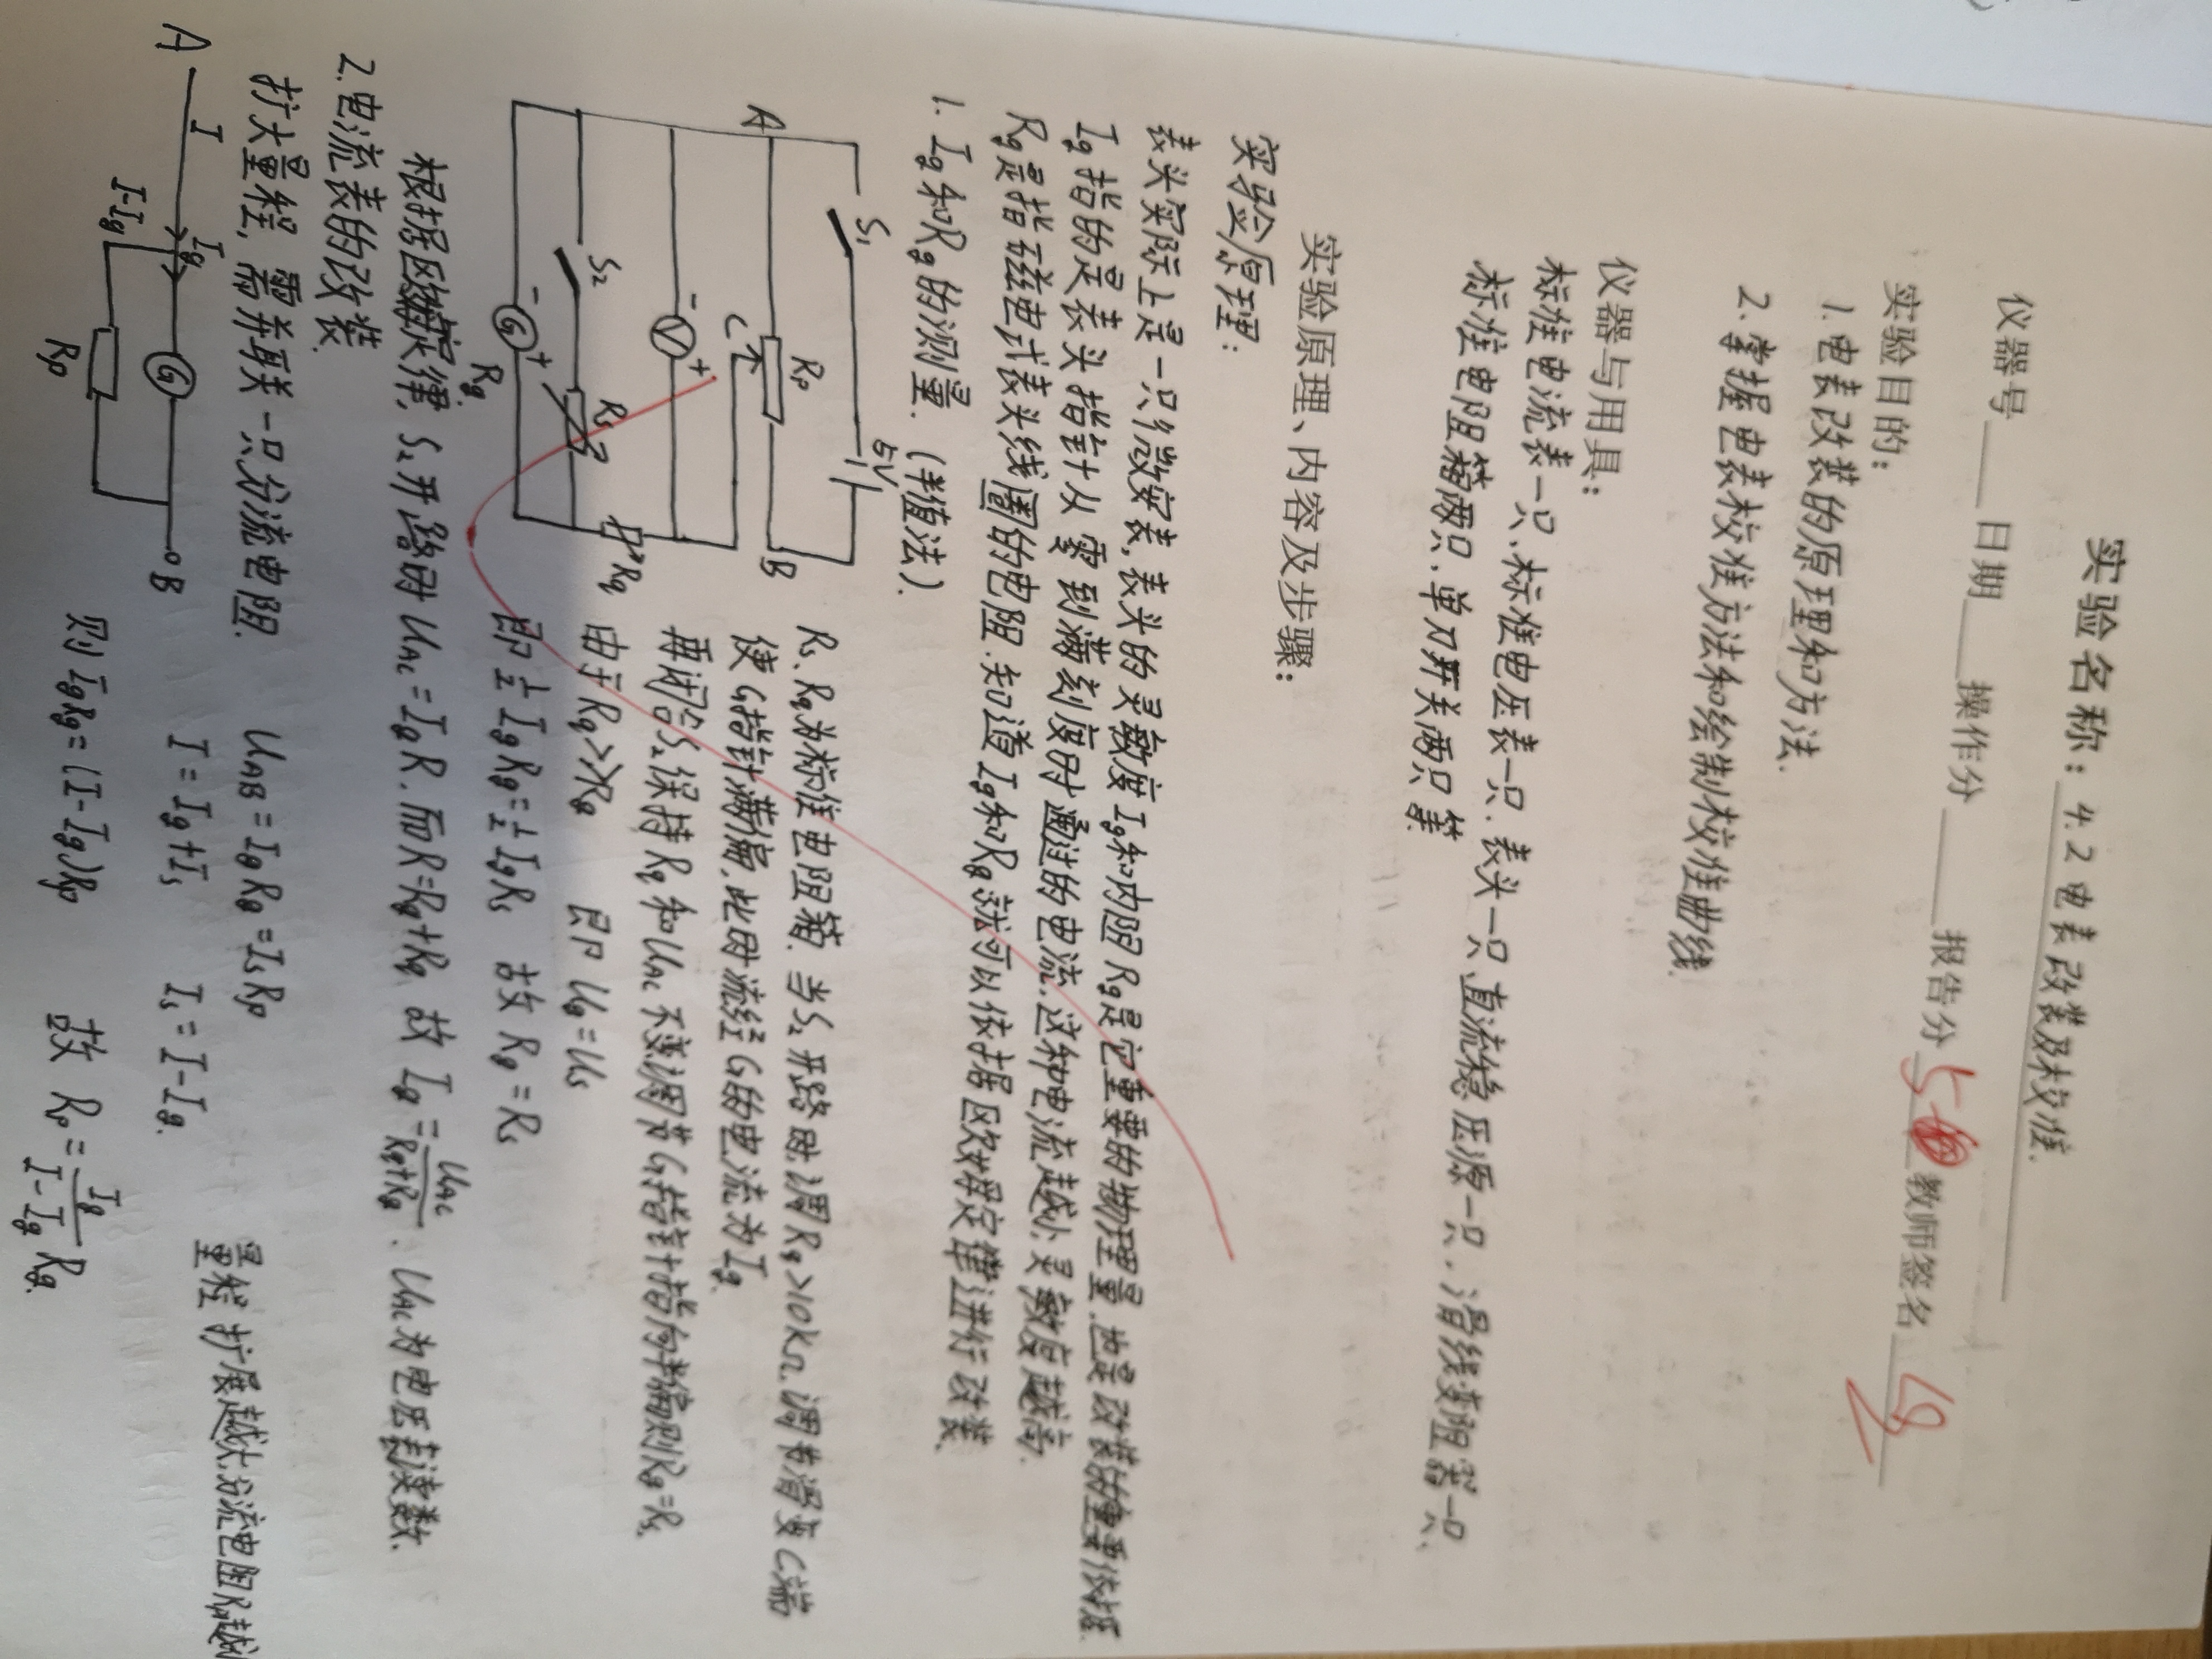 实验名称：4.2电表改装及校准.
仪器号 日期 操作分 报告分 5 教师签名
实验目的：
1.电表改装的原理和方法.
2.掌握电表校准方法和绘制校准曲线.
仪器与用具：
标准电流表一只、标准电压表一只、表头一只、直流稳压源一只、滑线变阻器一只、
标准电阻箱两只、单刀开关两只 等.
实验原理、内容及步骤：
实验原理：
表头实际上是一只微安表，表头的灵敏度Ig和内阻Rg是它重要的物理量.也是改装的重要依据.
Ig指的是表头指针从零到满刻度时通过的电流.这种电流越小.灵敏度越高.
Rg是指磁电式表头线圈的电阻.知道Ig和Rg就可以依据欧姆定律进行改装.
1. Ig和Rg的测量.(半值法).
S₁
5V
A
Rp
B
C
- V +
S₂
Rs
- G +
Rg
Rq
Rs、Rq为标准电阻箱.当S₂开路时.调Rq>10kΩ.调节滑变C端
使G指针满偏.此时流经G的电流为Ig.
再闭合S₂保持Rq和UAC不变调节G指针指向半偏则Rg=Rs.
由于Rq>>Rg 即Ug=Us
即½IgRg=½IgRs 故Rg=Rs
根据欧姆定律，S₂开路时UAC=IgR.而R=Rq+Rg 故Ig=UAC/(Rq+Rg). UAC为电压表读数.
2.电流表的改装.
扩大量程，需并联一只分流电阻.
A I Ig G B
I-Ig
Rp
UAB=IgRg=IsRp
I=Ig+Is Is=I-Ig.
则IgRg=(I-Ig)Rp 故 Rp=Ig/(I-Ig) Rg.
量程扩展越大.分流电阻Rp越